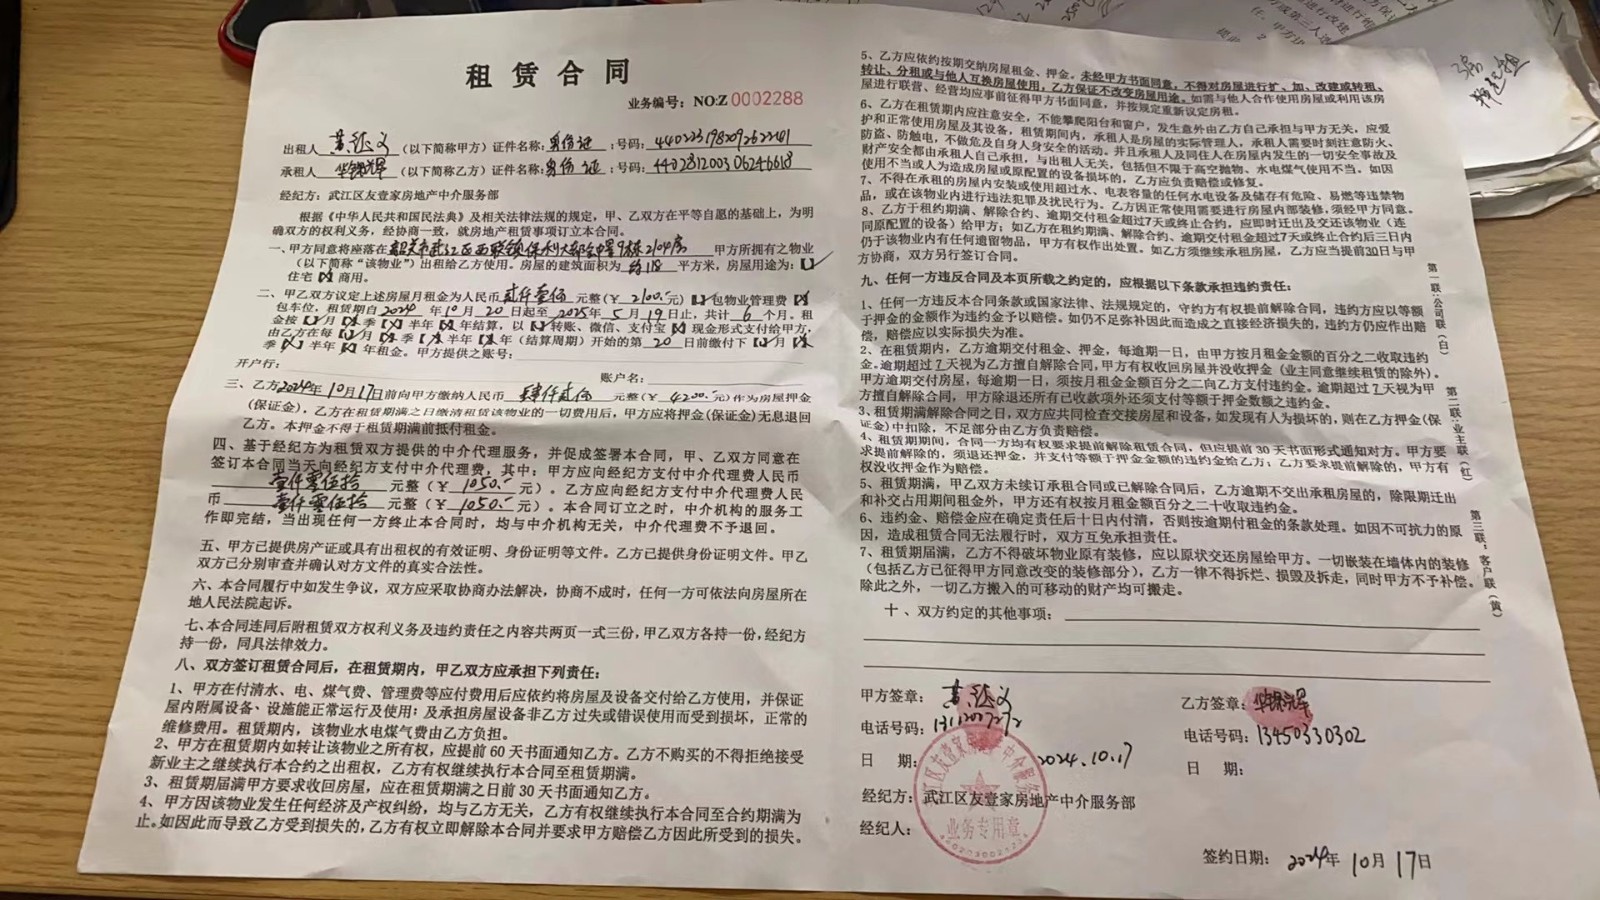 租赁合同
业务编号：NO:Z 0002288
出租人 （以下简称甲方）证件名称：身份证：号码：
承租人 （以下简称乙方）证件名称：身份证：号码：
经纪方：武江区友壹家房地产中介服务部
根据《中华人民共和国民法典》及相关法律法规的规定，甲、乙双方在平等自愿的基础上，为明
确双方的权利义务，经协商一致，就房地产租赁事项订立本合同。
一、甲方同意将座落在韶关市武江区西联镇保利大都会中星9栋2104房 甲方所拥有之物业
（以下简称“该物业”）出租给乙方使用。房屋的建筑面积为 约118 平方米，房屋用途为：【√】
住宅【×】商用。
二、甲乙双方议定上述房屋月租金为人民币 贰仟壹佰 元整（¥ 2100.元）【√】包物业管理费【×】
包车位，租赁期自2024年10月20日起至2025年5月19日止，共计 6 个月。租
金按【√】月【×】季【×】半年【×】年结算，以【√】转账、微信、支付宝【×】现金形式支付给甲方，
由乙方在每【√】月【×】季【×】半年【×】年（结算周期）开始的第 20 日前缴付下【√】月【×】
季【×】半年【×】年租金。甲方提供之账号：
开户行： 账户名：
三、乙方2024年10月17日前向甲方缴纳人民币 肆仟贰佰 元整（¥ 4200.元）作为房屋押金
（保证金），乙方在租赁期满之日缴清租赁该物业的一切费用后，甲方应将押金（保证金）无息退回
乙方。本押金不得于租赁期满前抵付租金。
四、基于经纪方为租赁双方提供的中介代理服务，并促成签署本合同，甲、乙双方同意在
签订本合同当天向经纪方支付中介代理费，其中：甲方应向经纪方支付中介代理费人民币
壹仟零伍拾 元整（¥ 1050.- 元）。乙方应向经纪方支付中介代理费人民
币 壹仟零伍拾 元整（¥ 1050.- 元）。本合同订立之时，中介机构的服务工
作即完结，当出现任何一方终止本合同时，均与中介机构无关，中介代理费不予退回。
五、甲方已提供房产证或具有出租权的有效证明、身份证明等文件。乙方已提供身份证明文件。甲乙
双方已分别审查并确认对方文件的真实合法性。
六、本合同履行中如发生争议，双方应采取协商办法解决，协商不成时，任何一方可依法向房屋所在
地人民法院起诉。
七、本合同连同后附租赁双方权利义务及违约责任之内容共两页一式三份，甲乙双方各持一份，经纪方
持一份，同具法律效力。
八、双方签订租赁合同后，在租赁期内，甲乙双方应承担下列责任：
1、甲方在付清水、电、煤气费、管理费等应付费用后应依约将房屋及设备交付给乙方使用，并保证
屋内附属设备、设施能正常运行及使用；及承担房屋设备非乙方过失或错误使用而受到损坏，正常的
维修费用。租赁期内，该物业水电煤气费由乙方负担。
2、甲方在租赁期内如转让该物业之所有权，应提前60天书面通知乙方。乙方不购买的不得拒绝接受
新业主之继续执行本合约之出租权，乙方有权继续执行本合同至租赁期满。
3、租赁期届满甲方要求收回房屋，应在租赁期满之日前30天书面通知乙方。
4、甲方因该物业发生任何经济及产权纠纷，均与乙方无关，乙方有权继续执行本合同至合约期满为
止。如因此而导致乙方受到损失的，乙方有权立即解除本合同并要求甲方赔偿乙方因此所受到的损失。
5、乙方应依约按期交纳房屋租金、押金。未经甲方书面同意，不得对房屋进行扩、加、改建或转租、
转让、分租或与他人互换房屋使用，乙方保证不改变房屋用途。如需与他人合作使用房屋或利用该房
屋进行联营、经营均应事前征得甲方书面同意，并按规定重新议定房租。
6、乙方在租赁期内应注意安全，不能攀爬阳台和窗户，发生意外由乙方自己承担与甲方无关，应爱
护和正常使用房屋及其设备，租赁期间内，承租人是房屋的实际管理人，承租人需要时刻注意防火、
防盗、防触电，不做危及自身人身安全的活动。并且承租人及同住人在房屋内发生的一切安全事故及
财产安全都由承租人自己承担，与出租人无关，包括但不限于高空抛物、水电煤气使用不当。如因
使用不当或人为造成房屋或原配置的设备损坏的，乙方应负责赔偿或修复。
7、不得在承租的房屋内安装或使用超过水、电表容量的任何水电设备及储存有危险、易燃等违禁物
品，或在该物业内进行违法犯罪及扰民行为。乙方因正常使用需要进行房屋内部装修，须经甲方同意。
8、乙方于租约期满、解除合约、逾期交租金超过7天或终止合约，应即时迁出及交还该物业（连
同原配置的设备）给甲方；如乙方在租约期满、解除合约、逾期交租金超过7天或终止合约后三日内
仍于该物业内有任何遗留物品，甲方有权作出处置。如乙方须继续承租房屋，乙方应当提前30日与甲
方协商，双方另行签订合同。
九、任何一方违反合同及本页所载之约定的，应根据以下条款承担违约责任：
1、任何一方违反本合同条款或国家法律、法规规定的，守约方有权提前解除合同，违约方应以等额
于押金的金额作为违约金予以赔偿。如仍不足弥补因此而造成之直接经济损失的，违约方仍应作出赔
偿，赔偿应以实际损失为准。
2、在租赁期内，乙方逾期交付租金、押金，每逾期一日，由甲方按月租金金额的百分之二收取违约
金。逾期超过7天视为乙方擅自解除合同，甲方有权收回房屋并没收押金（业主同意继续租赁的除外）。
甲方逾期交付房屋，每逾期一日，须按月租金金额百分之二向乙方支付违约金。逾期超过7天视为甲
方擅自解除合同，甲方除退还所有已收款项外还须支付等额于押金数额之违约金。
3、租赁期满解除合同之日，双方应共同检查交接房屋和设备，如发现有人为损坏的，则在乙方押金（保
证金）中扣除，不足部分由乙方负责赔偿。
4、租赁期期间，合同一方均有权要求提前解除租赁合同，但应提前30天书面形式通知对方。甲方要
求提前解除的，须退还押金，并支付等额于押金金额的违约金给乙方；乙方要求提前解除的，甲方有
权没收押金作为赔偿。
5、租赁期满，甲乙双方未续订承租合同或已解除合同后，乙方逾期不交出承租房屋的，除限期迁出
和补交占用期间租金外，甲方还有权按月租金额百分之二十收取违约金。
6、违约金、赔偿金应在确定责任后十日内付清，否则按逾期付租金的条款处理。如因不可抗力的原
因，造成租赁合同无法履行时，双方互免承担责任。
7、租赁期届满，乙方不得破坏物业原有装修，应以原状交还房屋给甲方。一切嵌装在墙体内的装修
（包括乙方已征得甲方同意改变的装修部分），乙方一律不得拆烂、损毁及拆走，同时甲方不予补偿。
除此之外，一切乙方搬入的可移动的财产均可搬走。
十、双方约定的其他事项：
甲方签章： 乙方签章：
电话号码： 电话号码：13450330302
日 期： 2024.10.17 日 期：
经纪方：武江区友壹家房地产中介服务部
经纪人：
业务专用章
签约日期：2024年10月17日
第一联：公司联（白）
第二联：业主联（红）
第三联：客户联（黄）